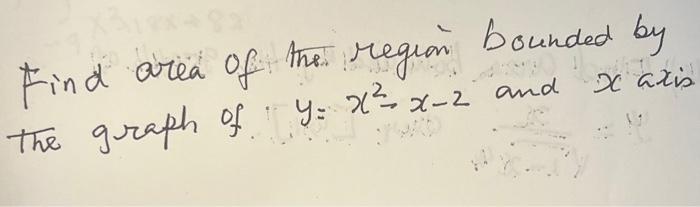 Find area of the region bounded by
the graph of y = x² - x - 2 and x axis